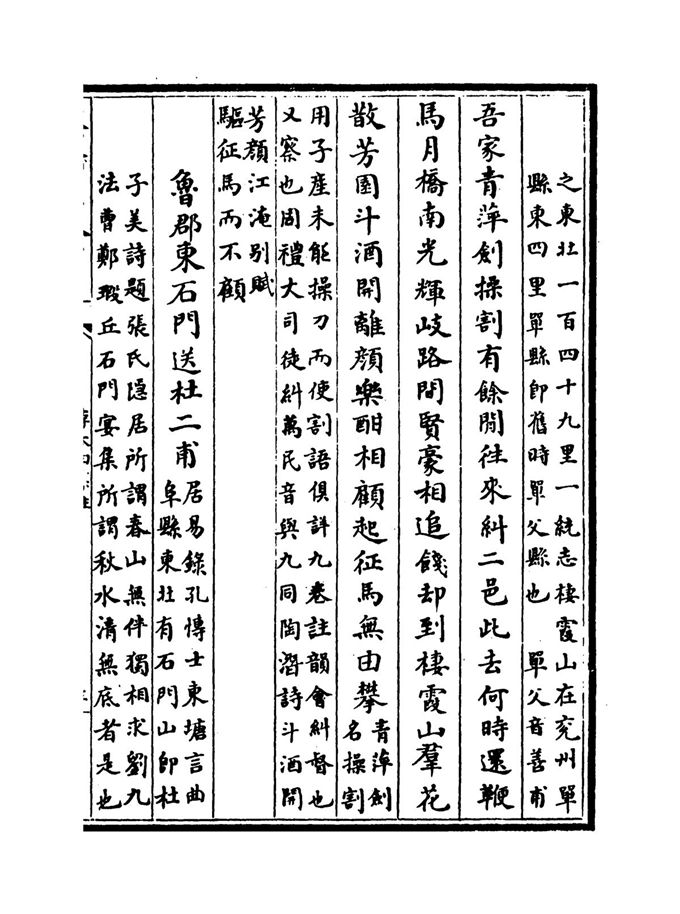 之東北一百四十九里一統志棲霞山在兗州單
縣東四里單縣即舊時單父縣也　單父音善甫
吾家青萍劍操割有餘閒往來糾二邑此去何時還鞭
馬月橋南光輝岐路間賢豪相追餞却到棲霞山羣花
散芳園斗酒開離顔樂酣相顧起征馬無由攀
青萍劍
名操割
用子産未能操刀而使割語俱詳九卷註韻會糾督也
又察也周禮大司徒糾萬民音與九同陶潛詩斗酒開
芳顔江淹别賦
驅征馬而不顧
魯郡東石門送杜二甫
居易錄孔愽士東塘言曲
阜縣東北有石門山即杜
子美詩題張氏隱居所謂春山無伴獨相求劉九
法曹鄭瑕丘石門宴集所謂秋水清無底者是也